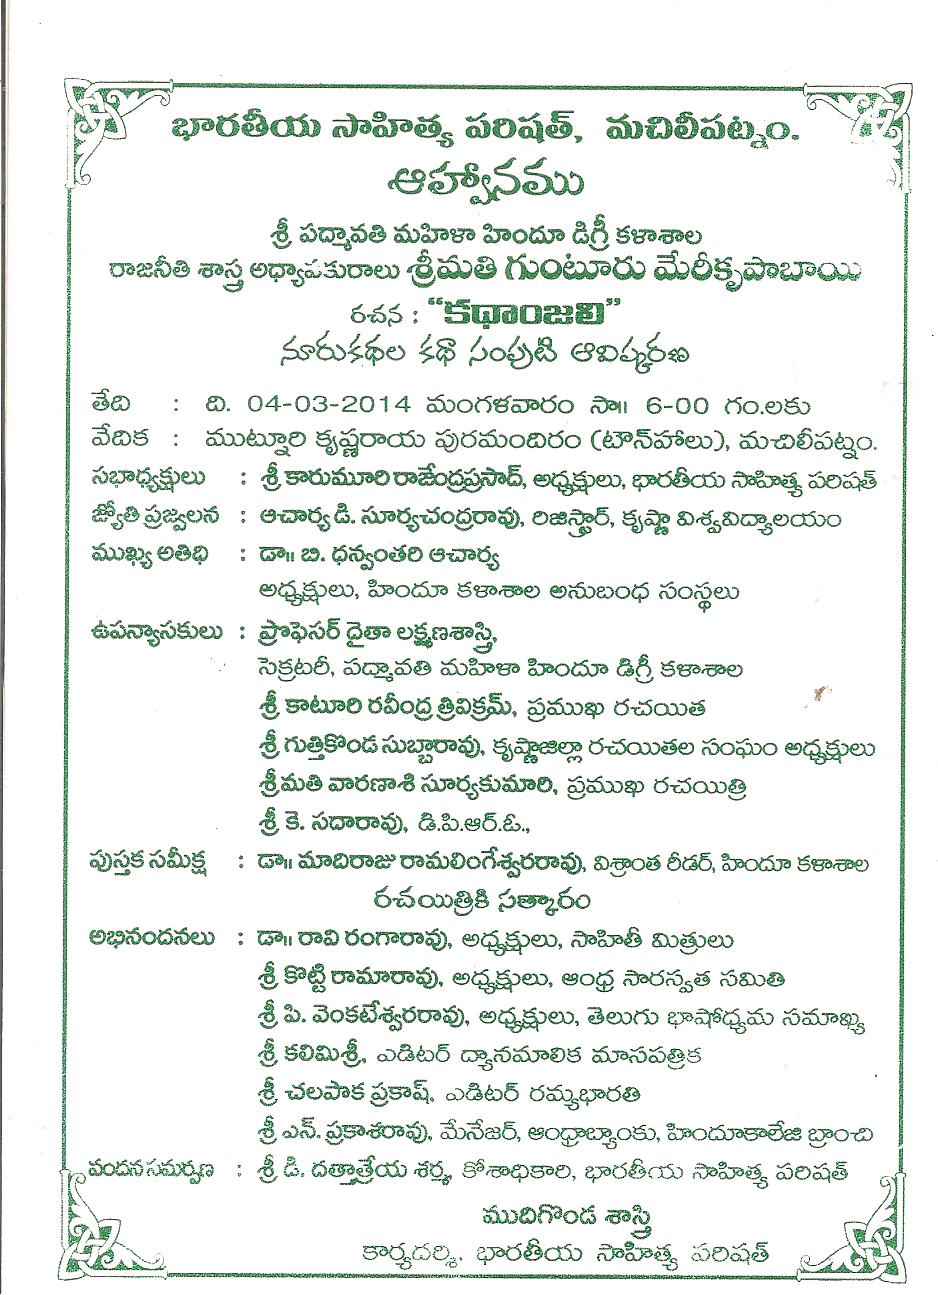 భారతీయ సాహిత్య పరిషత్, మచిలీపట్నం.
ఆహ్వానము
శ్రీ పద్మావతి మహిళా హిందూ డిగ్రీ కళాశాల
రాజనీతి శాస్త్ర అధ్యాపకురాలు శ్రీమతి గుంటూరు మేరీకృపాబాయి
రచన : "కథాంజలి"
నూరుకథల కథా సంపుటి ఆవిష్కరణ
తేది : ది. 04-03-2014 మంగళవారం సా॥ 6-00 గం.లకు
వేదిక : ముట్నూరి కృష్ణరాయ పురమందిరం (టౌన్‌హాలు), మచిలీపట్నం.
సభాధ్యక్షులు : శ్రీ కారుమూరి రాజేంద్రప్రసాద్, అధ్యక్షులు, భారతీయ సాహిత్య పరిషత్
జ్యోతి ప్రజ్వలన : ఆచార్య డి. సూర్యచంద్రరావు, రిజిస్ట్రార్, కృష్ణా విశ్వవిద్యాలయం
ముఖ్య అతిధి : డా॥ బి. ధన్వంతరి ఆచార్య
అధ్యక్షులు, హిందూ కళాశాల అనుబంధ సంస్థలు
ఉపన్యాసకులు : ప్రొఫెసర్ దైతా లక్ష్మణశాస్త్రి,
సెక్రటరీ, పద్మావతి మహిళా హిందూ డిగ్రీ కళాశాల
శ్రీ కాటూరి రవీంద్ర త్రివిక్రమ్, ప్రముఖ రచయిత
శ్రీ గుత్తికొండ సుబ్బారావు, కృష్ణాజిల్లా రచయితల సంఘం అధ్యక్షులు
శ్రీమతి వారణాశి సూర్యకుమారి, ప్రముఖ రచయిత్రి
శ్రీ కె. సదారావు, డి.పి.ఆర్.ఓ.,
పుస్తక సమీక్ష : డా॥ మాదిరాజు రామలింగేశ్వరరావు, విశ్రాంత రీడర్, హిందూ కళాశాల
రచయిత్రికి సత్కారం
అభినందనలు : డా॥ రావి రంగారావు, అధ్యక్షులు, సాహితీ మిత్రులు
శ్రీ కొట్టి రామారావు, అధ్యక్షులు, ఆంధ్ర సారస్వత సమితి
శ్రీ పి. వెంకటేశ్వరరావు, అధ్యక్షులు, తెలుగు భాషోధ్యమ సమాఖ్య
శ్రీ కలిమిశ్రీ, ఎడిటర్ ద్యానమాలిక మాసపత్రిక
శ్రీ చలపాక ప్రకాష్, ఎడిటర్ రమ్యభారతి
శ్రీ ఎన్. ప్రకాశరావు, మేనేజర్, ఆంధ్రాబ్యాంకు, హిందూకాలేజి బ్రాంచి
వందన సమర్పణ : శ్రీ డి. దత్తాత్రేయ శర్మ, కోశాధికారి, భారతీయ సాహిత్య పరిషత్
ముదిగొండ శాస్త్రి
కార్యదర్శి, భారతీయ సాహిత్య పరిషత్